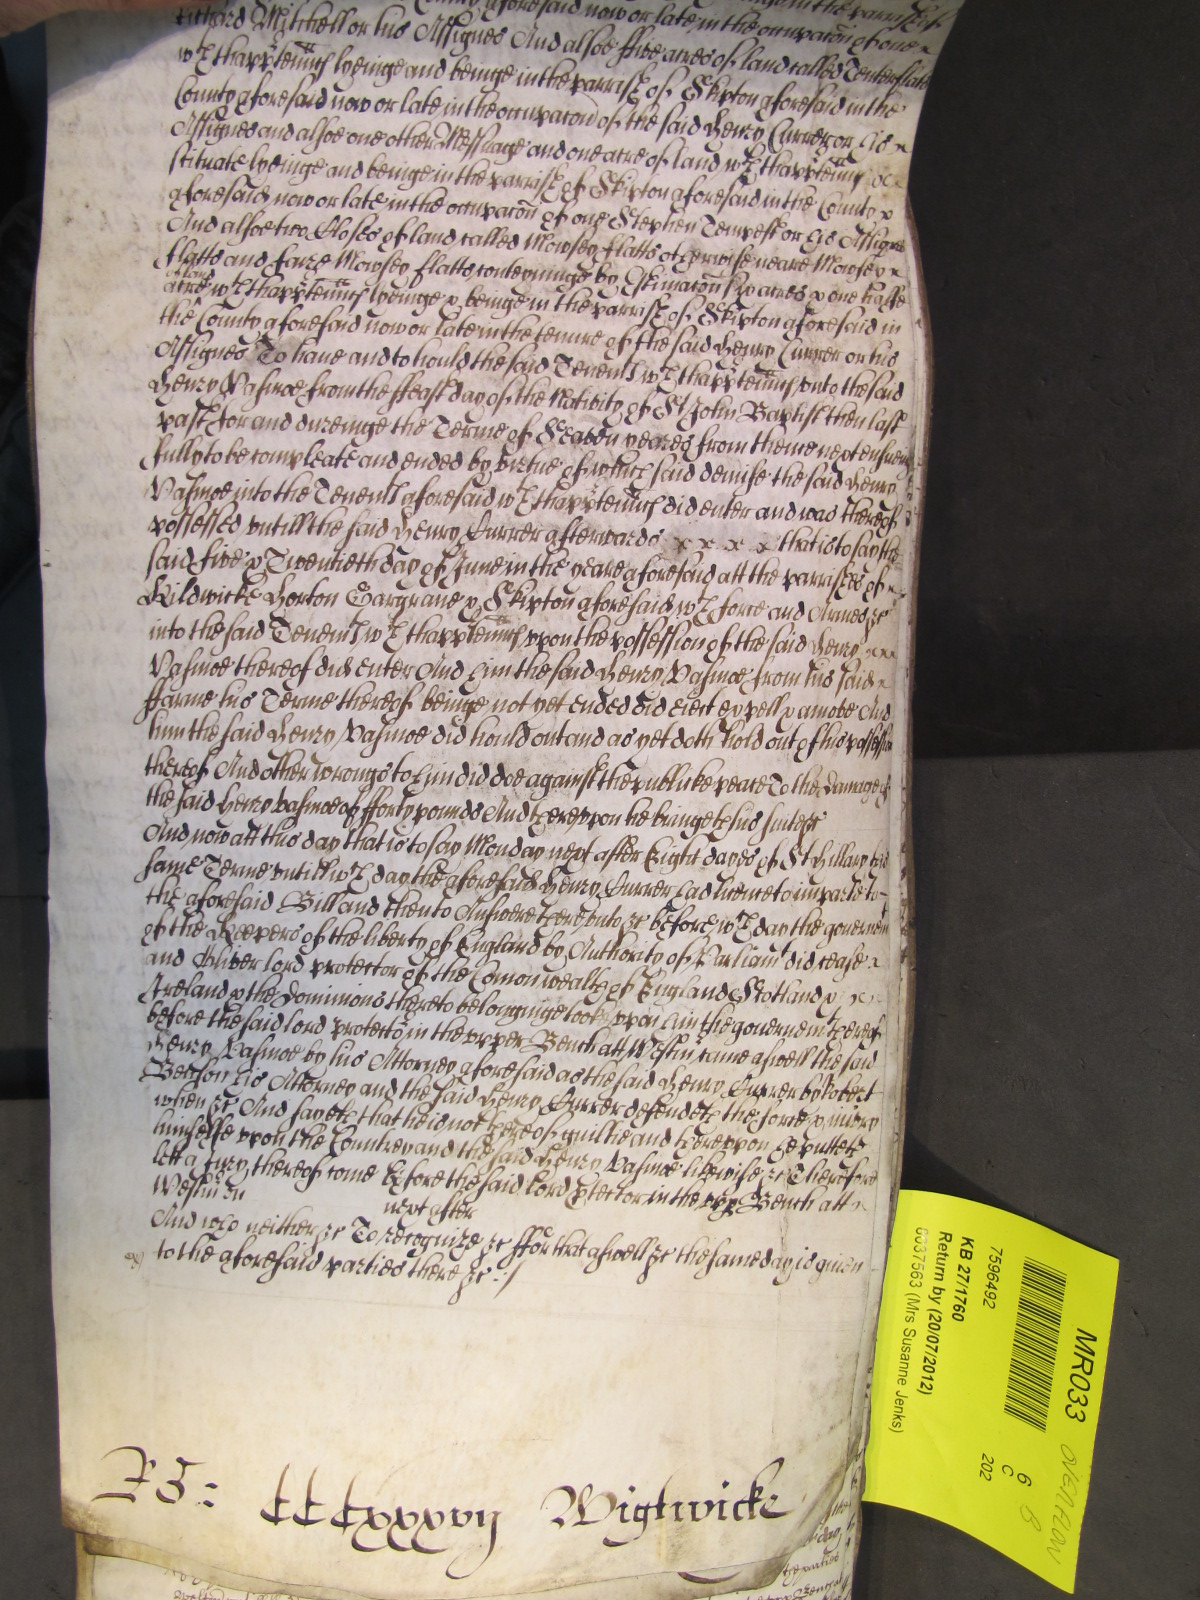 County aforesaid now or late in the occupacon of one
Richard Mitchell or his Assignes And alsoe ffive acres of land called Tenterflatt
wth thapptenncs lyeinge and beinge in the parrish of Skipton aforesaid in the
County aforesaid now or late in the occupacon of the said Henry Currer or his
Assignes and alsoe one other Messuage and one acre of land wth thapptenncs
scituate lyeinge and beinge in the parrish of Skipton aforesaid in the County
aforesaid now or late in the occupacon of one Stephen Tempest or his Assignes
And alsoe two Closes of land called Mowsey flatts otherwise neare Mowsey
flatts and farre Mowsey flatts conteyninge by Estimacon six acres & one halfe
acre of land wth thapptenncs lyeinge & beinge in the parrish of Skipton aforesaid in
the County aforesaid now or late in the tenure of the said Henry Currer or his
Assignes To have and to hould the said Tenemts wth thapptenncs unto the said
Henry from the ffeast day of the Nativity of St John Baptist then last
past for and dureinge the Terme of Seaven yeares from thence next ensueing
fully to be compleate and ended by virtue of which said demise the said Henry
into the Tenemts aforesaid wth thapptenncs did enter and was thereof
possessed untill the said Henry Currer afterwards x x x x that is to say the
said five & Twentieth day of June in the yeare aforesaid att the parrishes of
Kildwicke Horton Gargrave & Skipton aforesaid wth force and Armes &c
into the said Tenemts wth thapptenncs uppon the possession of the said Henry
thereof did enter And him the said Henry from his said
ffarme his Terme thereof beinge not yet ended did eiect expell & amove And
him the said Henry did hould out and as yet doth hold out of his possession
thereof And other wrongs to him did doe against the publicke peace To the Damage of
the said Henry of fforty pounds And thereupon he bringeth his suite &c
And now att this day that is to say Monday next after Eight dayes of St Hillary this
same Terme untill wch day the aforesaid Henry Currer had licence to imparle to
the aforesaid Bill and then to Answere thereunto &c before wch day the governemt
of the Keepers of the liberty of England by Authority of Parliamt did cease
and Oliver lord protector of the Comonwealth of England Scotland &
Ireland & the Dominions thereto belonginge tooke uppon him the governemt thereof
before the said lord protector in the upper Bench att Westmr came aswell the said
Henry by his Attorney aforesaid as the said Henry Currer by Robert
Benson his Attorney and the said Henry Currer defendeth the force & iniury
when &c And sayeth that he is not thereof guiltie and thereuppon he putteth
himselfe uppon the Countrey and the said Henry likewise &c Therefore
lett a Jury thereof come before the said lord ptector in the upp Bench att
Westmr on next after
And who neither &c To recognize &c ffor that aswell &c the same day is given
to the aforesaid parties there &c
CCCxxxvij Wightwicke
MR033
OVERFLOW
6
C
202
7596492
KB 27/1760
Return by (20/07/2012)
(Mrs Susanne Jenks)